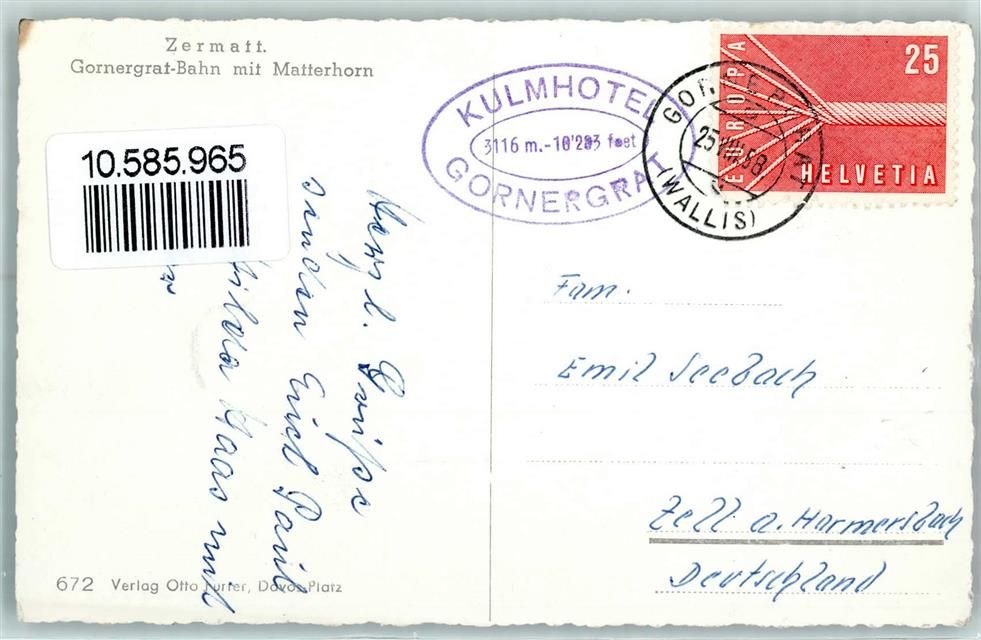 Zermatt.
Gornergrat-Bahn mit Matterhorn
10.585.965
KULMHOTEL
3116 m.-10'283 feet
GORNERGRAT
GORNERGRAT
25.VIII.58
(WALLIS)
EUROPA
25
HELVETIA
Herzl. Grüsse
senden Erich Paul
Haas und
Fam.
Emil Seebach
Zell a. Harmersbach
Deutschland
672 Verlag Otto Furter, Davos-Platz